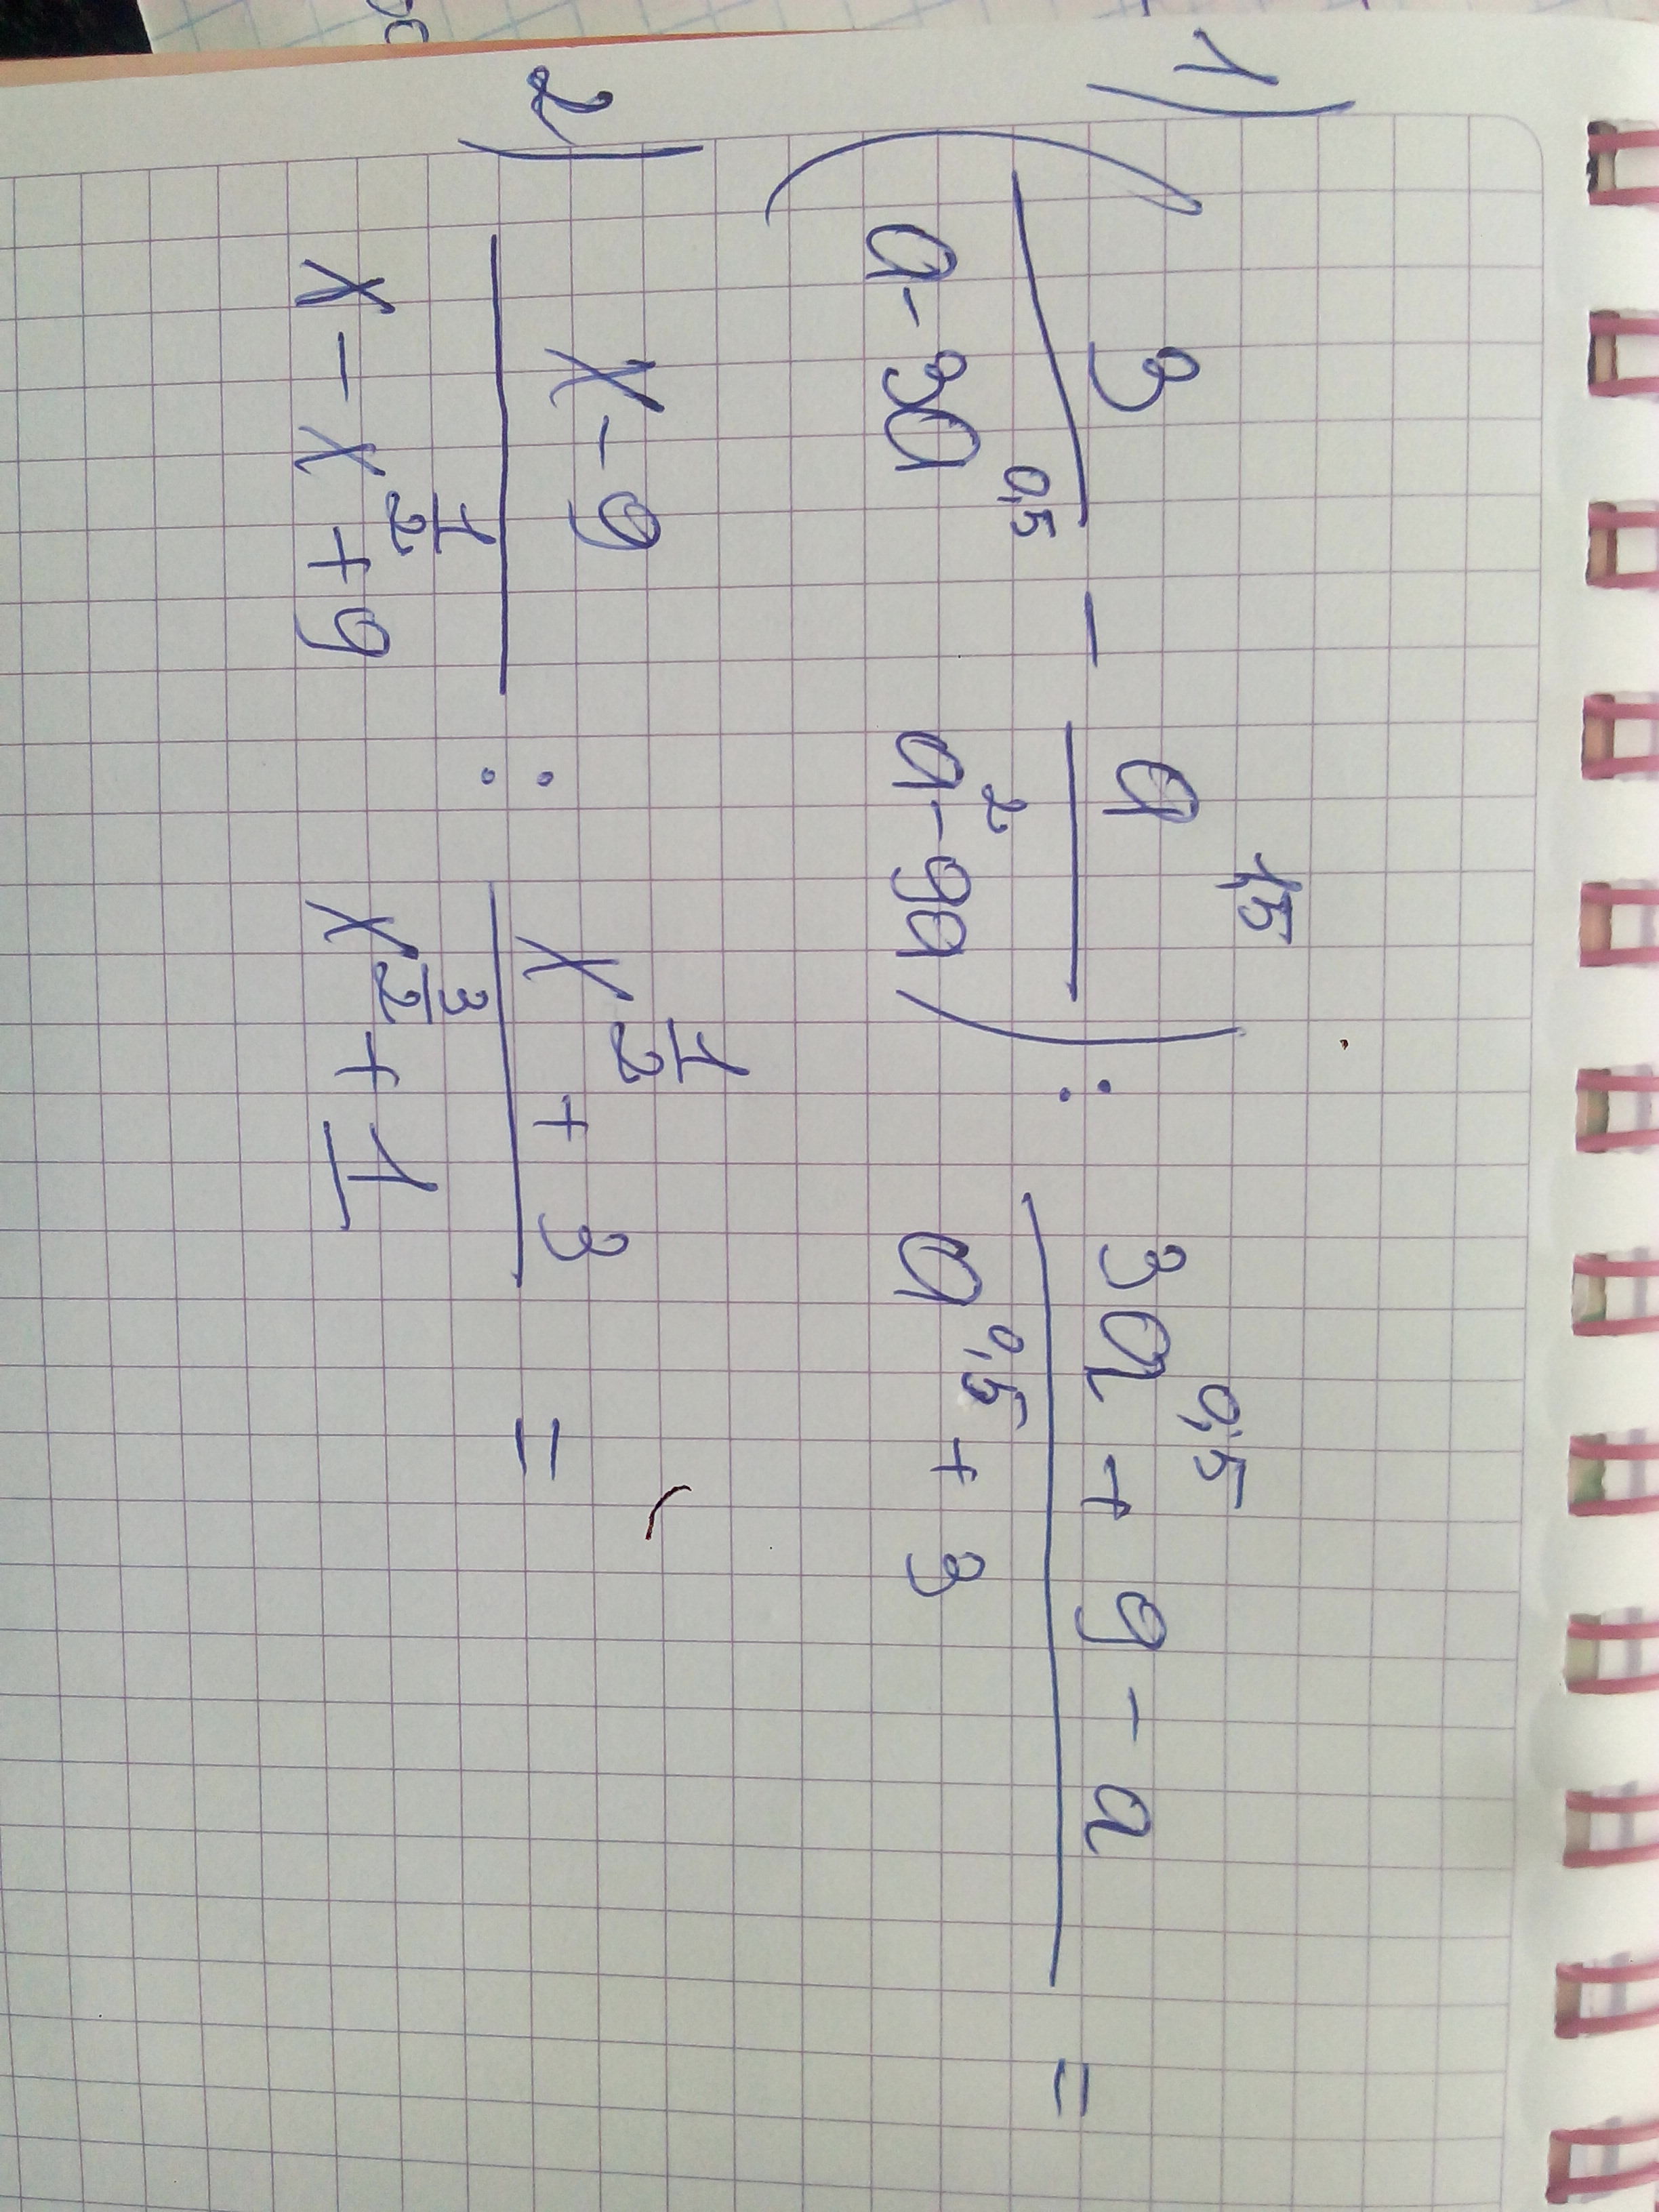 1) ( 3/(a - 3a^0,5) - a^1,5/(a^2 - 9a) ) : (3a^0,5 + 9 - a)/(a^0,5 + 3) =
2) (x - 9)/(x - x^(1/2) + 9) : (x^(1/2) + 3)/(x^(3/2) + 1) =